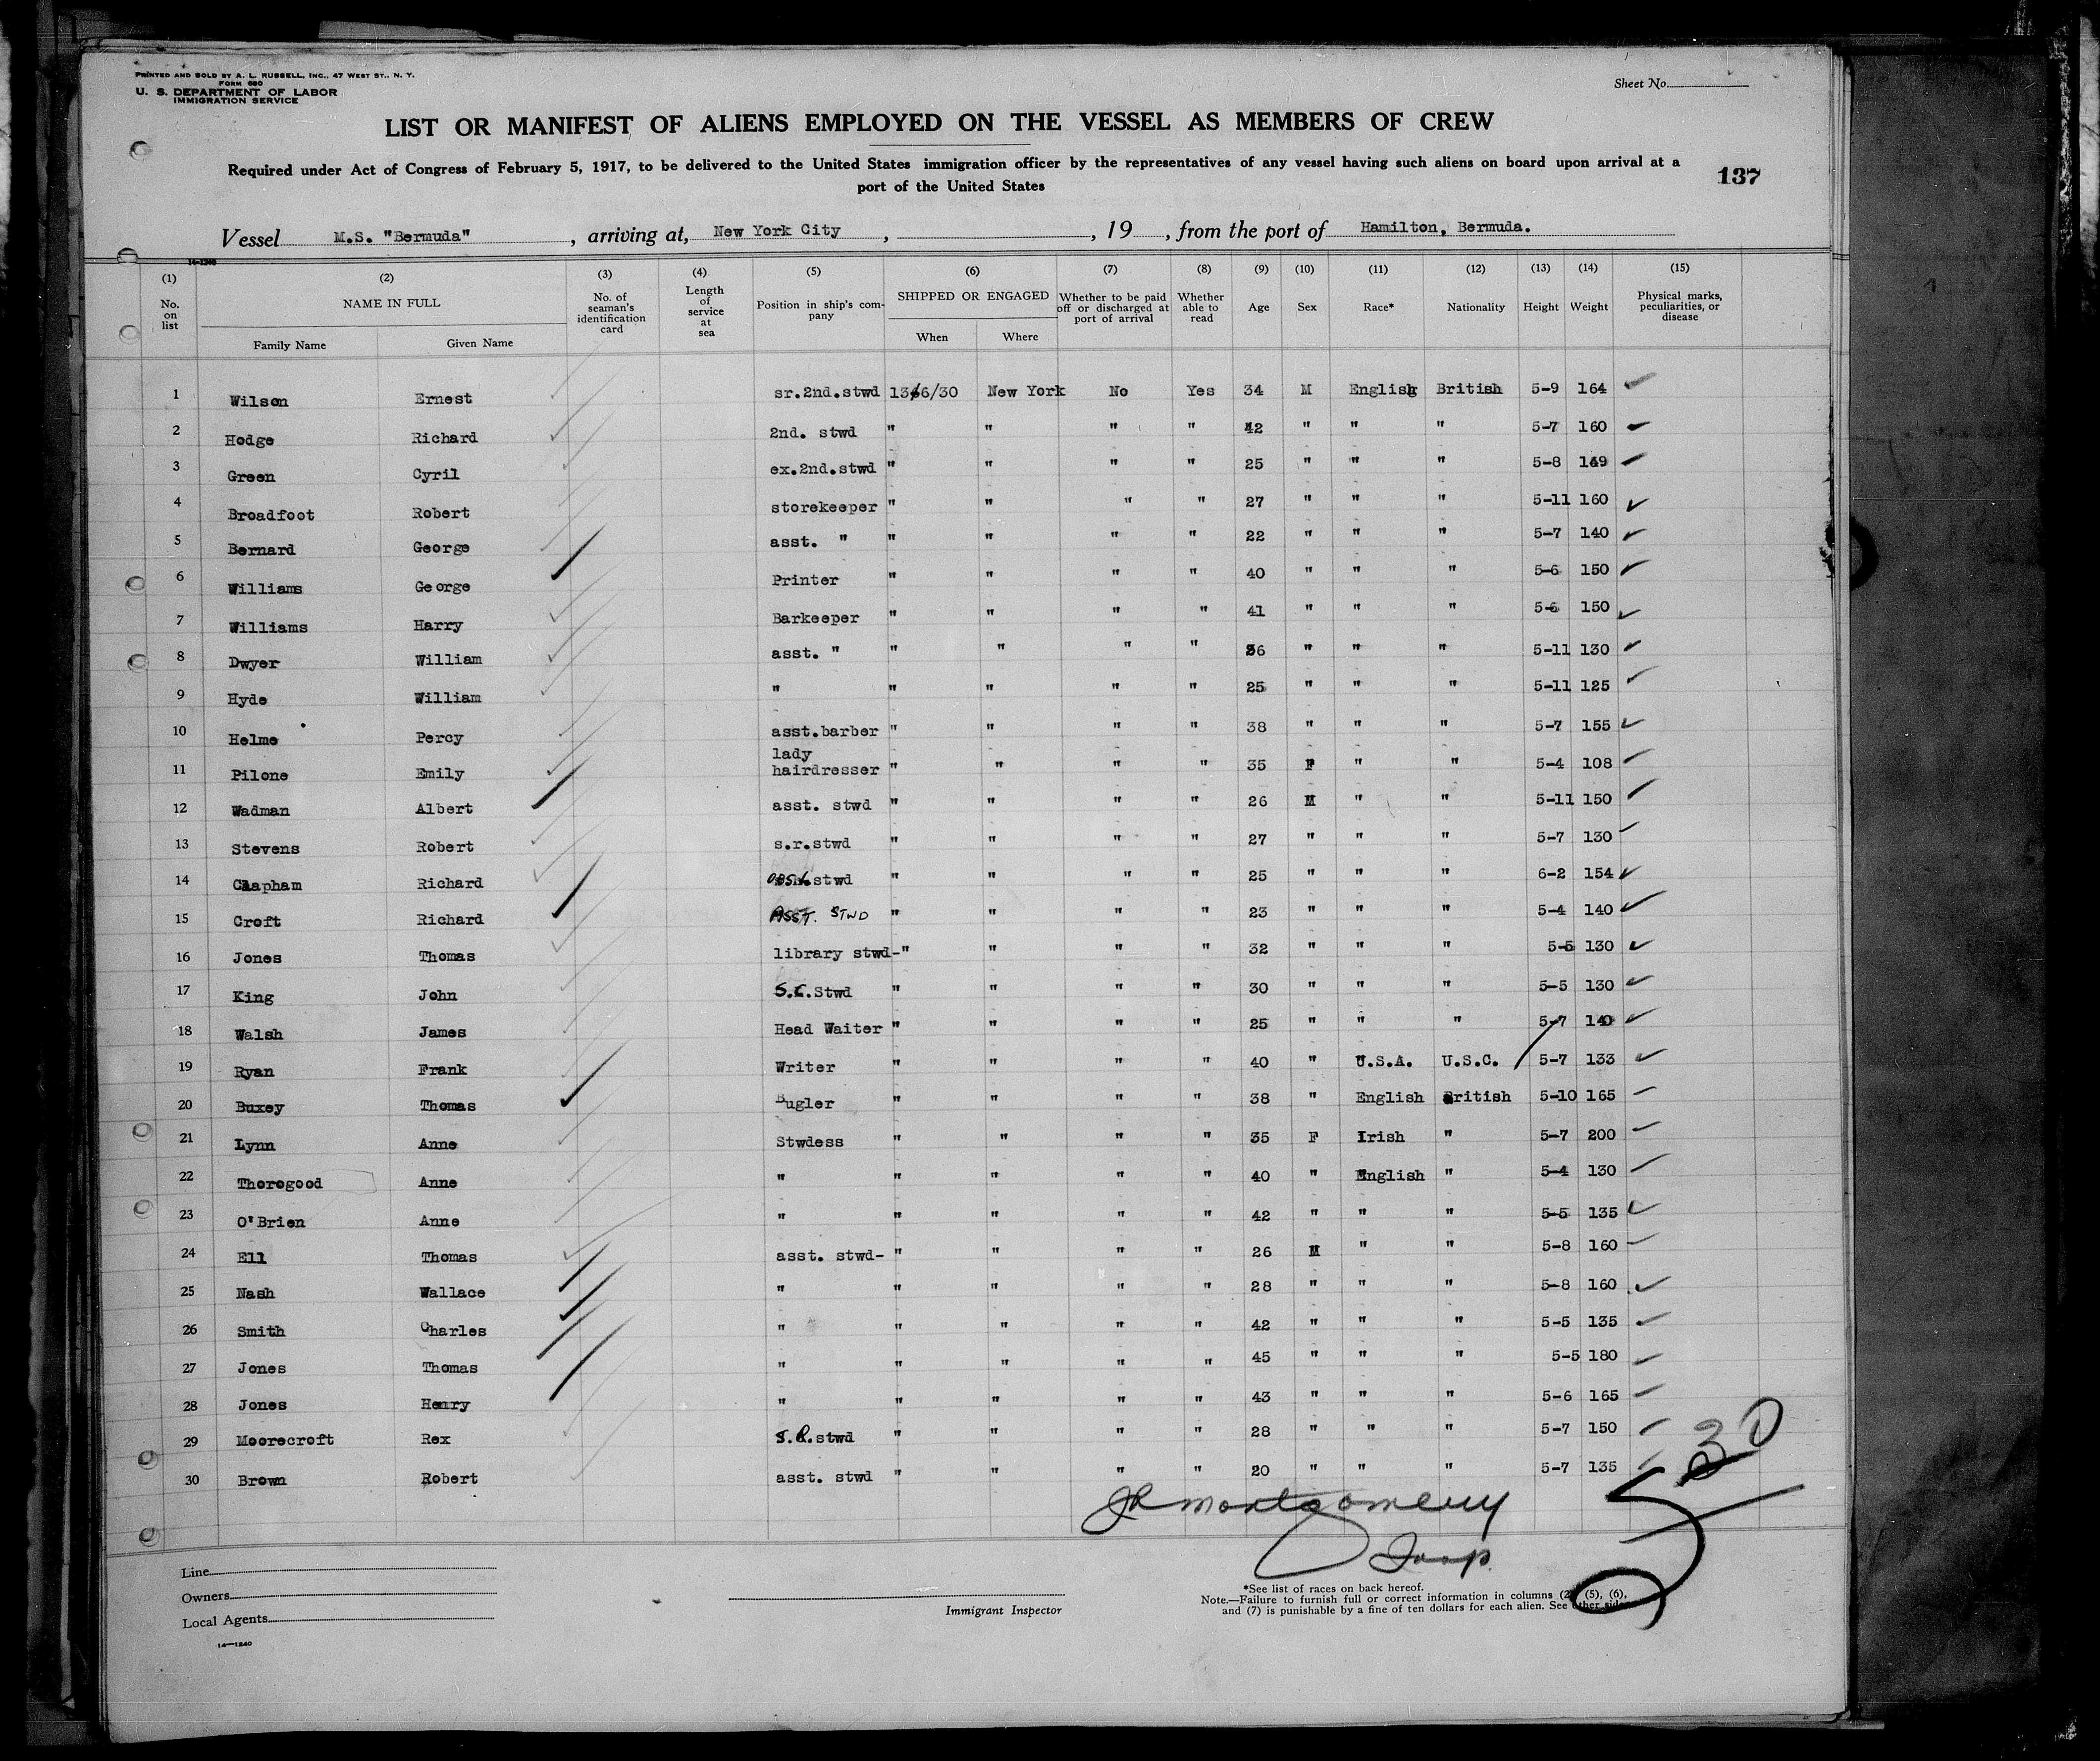 PRINTED AND SOLD BY A. L. RUSSELL, INC., 47 WEST ST., N. Y.
FORM 680
U. S. DEPARTMENT OF LABOR
IMMIGRATION SERVICE
Sheet No.
LIST OR MANIFEST OF ALIENS EMPLOYED ON THE VESSEL AS MEMBERS OF CREW
Required under Act of Congress of February 5, 1917, to be delivered to the United States immigration officer by the representatives of any vessel having such aliens on board upon arrival at a
port of the United States
137
Vessel M.S. "Bermuda" , arriving at, New York City , , 19 , from the port of Hamilton, Bermuda.
14-1240
(1) (2) (3) (4) (5) (6) (7) (8) (9) (10) (11) (12) (13) (14) (15)
No. on list NAME IN FULL Family Name Given Name No. of seaman's identification card Length of service at sea Position in ship's company SHIPPED OR ENGAGED When Where Whether to be paid off or discharged at port of arrival Whether able to read Age Sex Race* Nationality Height Weight Physical marks, peculiarities, or disease
1 Wilson Ernest sr.2nd.stwd 13/6/30 New York No Yes 34 M English British 5-9 164
2 Hodge Richard 2nd. stwd " " " " 42 " " " 5-7 160
3 Green Cyril ex.2nd.stwd " " " " 25 " " " 5-8 149
4 Broadfoot Robert storekeeper " " " " 27 " " " 5-11 160
5 Bernard George asst. " " " " " 22 " " " 5-7 140
6 Williams George Printer " " " " 40 " " " 5-6 150
7 Williams Harry Barkeeper " " " " 41 " " " 5-6 150
8 Dwyer William asst. " " " " " 36 " " " 5-11 130
9 Hyde William " " " " " 25 " " " 5-11 125
10 Helme Percy asst.barber " " " " 38 " " " 5-7 155
11 Pilone Emily lady hairdresser " " " " 35 F " " 5-4 108
12 Wadman Albert asst. stwd " " " " 26 M " " 5-11 150
13 Stevens Robert s.r.stwd " " " " 27 " " " 5-7 130
14 Clapham Richard stwd " " " " 25 " " " 6-2 154
15 Croft Richard ASST. STWD " " " " 23 " " " 5-4 140
16 Jones Thomas library stwd-" " " " 32 " " " 5-5 130
17 King John S.C.Stwd " " " " 30 " " " 5-5 130
18 Walsh James Head Waiter " " " " 25 " " " 5-7 140
19 Ryan Frank Writer " " " " 40 " U.S.A. U.S.C. 5-7 133
20 Buxey Thomas Bugler " " " " 38 " English British 5-10 165
21 Lynn Anne Stwdess " " " " 35 F Irish " 5-7 200
22 Thorogood Anne " " " " " 40 " English " 5-4 130
23 O'Brien Anne " " " " " 42 " " " 5-5 135
24 Ell Thomas asst. stwd- " " " " 26 M " " 5-8 160
25 Nash Wallace " " " " " 28 " " " 5-8 160
26 Smith Charles " " " " " 42 " " " 5-5 135
27 Jones Thomas " " " " " 45 " " " 5-5 180
28 Jones Henry " " " " " 43 " " " 5-6 165
29 Moorecroft Rex S.R.stwd " " " " 28 " " " 5-7 150
30 Brown Robert asst. stwd " " " " 20 " " " 5-7 135
30
JR Montgomery
Insp.
Line
Owners
Local Agents
14-1240
Immigrant Inspector
*See list of races on back hereof.
Note.—Failure to furnish full or correct information in columns (2), (5), (6),
and (7) is punishable by a fine of ten dollars for each alien. See other side.